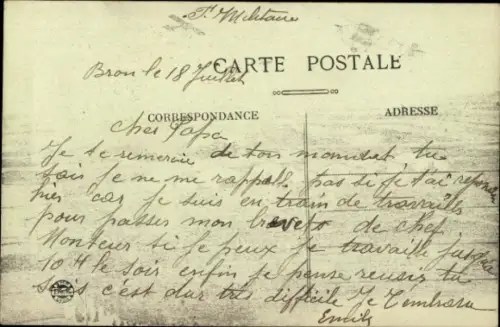 F. Militaire
CARTE POSTALE
Bron le 18 Juillet
CORRESPONDANCE
ADRESSE
Cher Papa
Je te remercie de ton mandat tu
sais je ne me rappelle pas si je t'ai repondu
hier car je suis en train de travailler
pour passer mon brevet de chef
Monteur si je peux je travaille jusqu'a
10 H le soir enfin je pense reussir tu
sais c'est dur très difficile Je t'embrasse
Emile